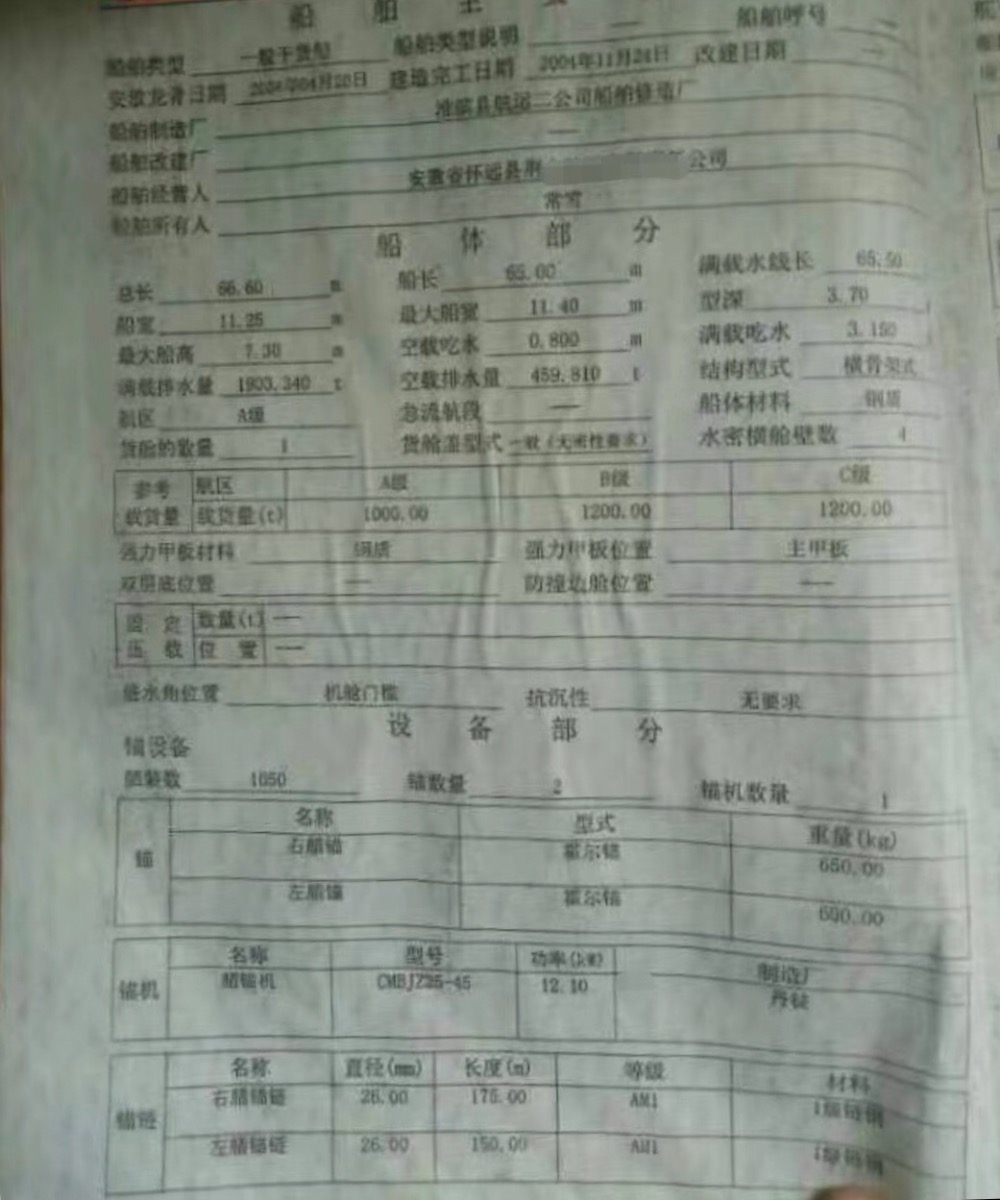 船 舶 主 要
船舶类型 一般干货船 船舶类型说明 — 船舶呼号 —
安放龙骨日期 建造完工日期 2004年11月24日 改建日期 —
船舶制造厂 淮滨县航运二公司船舶修造厂
船舶改建厂 —
船舶经营人 安徽省怀远县荆 公司
船舶所有人 常雪
船 体 部 分
总长 66.60 m 船长 65.00 m 满载水线长 65.50
船宽 11.25 m 最大船宽 11.40 m 型深 3.70
最大船高 7.30 m 空载吃水 0.800 m 满载吃水 3.150
满载排水量 1903.340 t 空载排水量 459.810 t 结构型式 横骨架式
航区 A级 急流航段 — 船体材料 钢质
货舱的数量 1 货舱盖型式 一般(无密性要求) 水密横舱壁数 4
参考 航区 A级 B级 C级
载货量 载货量(t) 1000.00 1200.00 1200.00
强力甲板材料 钢质 强力甲板位置 主甲板
双层底位置 — 防撞边舱位置 —
固 定 数量(t) —
压 载 位 置 —
进水角位置 机舱门槛 抗沉性 无要求
设 备 部 分
锚设备
舾装数 1050 锚数量 2 锚机数量 1
锚 名称 型式 重量(kg)
右艏锚 霍尔锚 650.00
左艏锚 霍尔锚
锚机 名称 型号 功率(kW) 制造厂
艏锚机 12.10
锚链 名称 直径(mm) 长度(m) 等级 材料
右艏锚链 26.00 175.00 AM1
左艏锚链 26.00 150.00 AM1